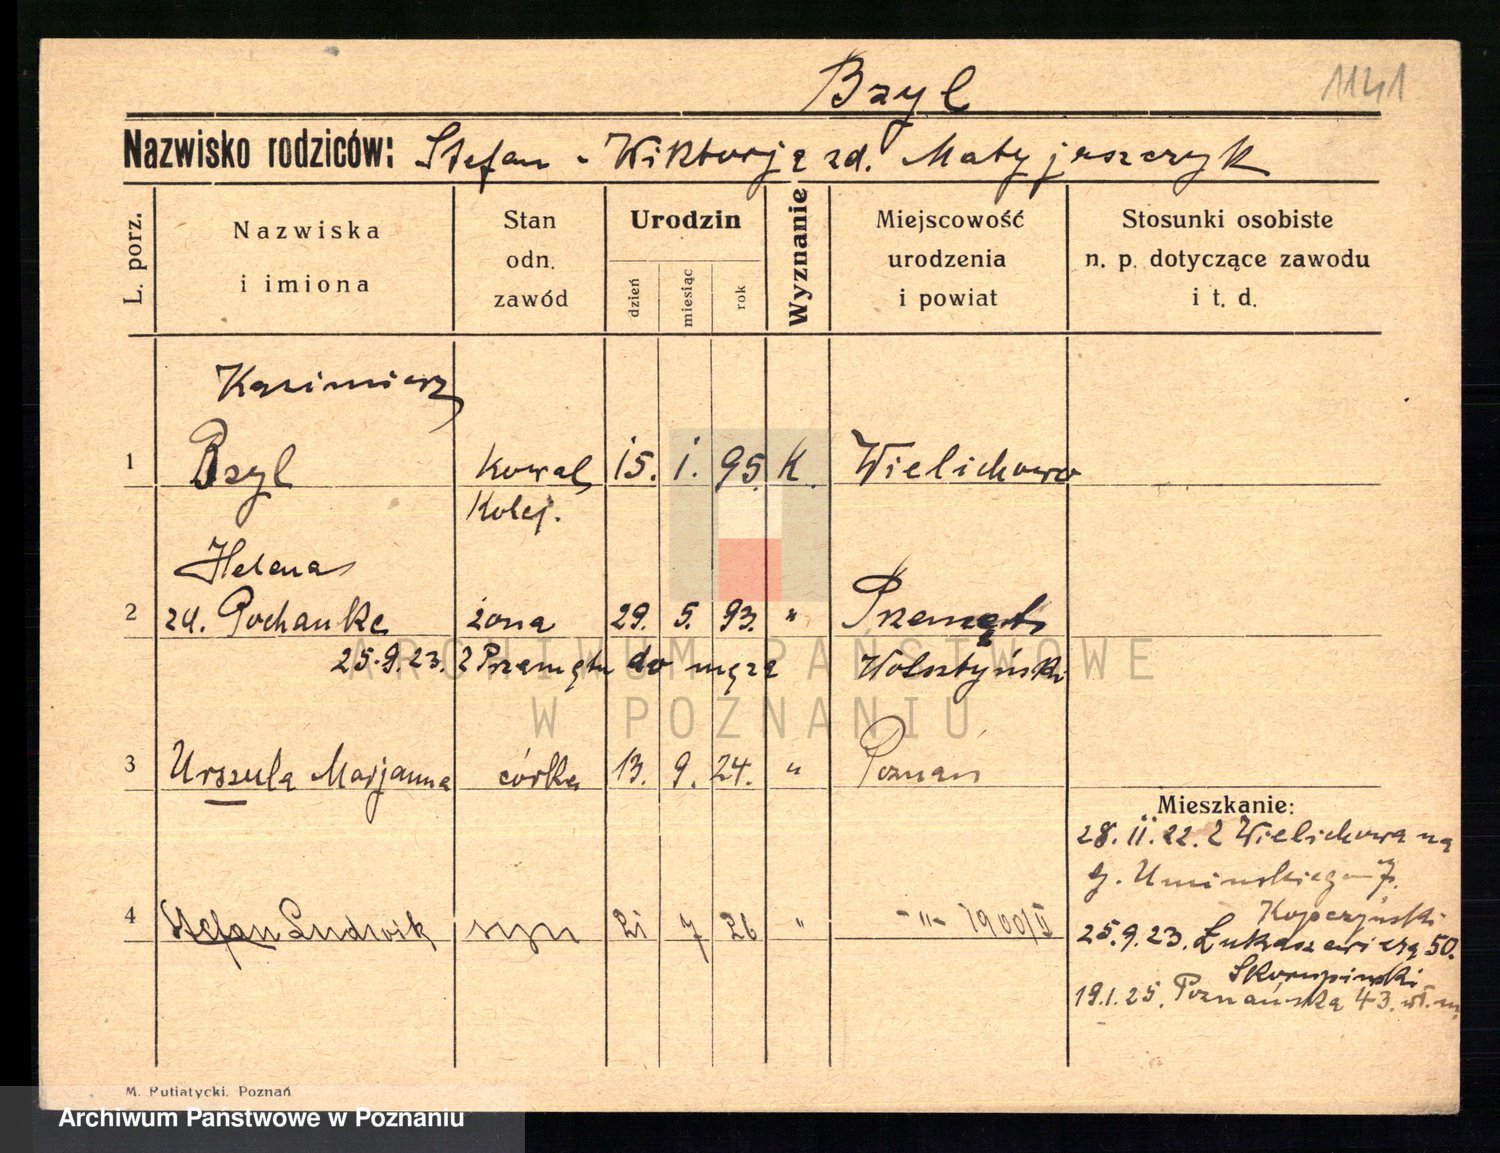 Bzyl 1141
Nazwisko rodziców: Stefan - Wiktorja zd. Matyjaszczyk
L. porz.
Nazwiska
i imiona
Stan
odn.
zawód
Urodzin
dzień
miesiąc
rok
Wyznanie
Miejscowość
urodzenia
i powiat
Stosunki osobiste
n. p. dotyczące zawodu
i t. d.
Kazimierz
1 Bzyl kowal 15. 1. 95. K. Wielichowo
Kolej.
Helena
2 zd. Pochanke żona 29. 5. 93. " Przemęt
25.9.23. z Przemętu do męża Wolsztyński
3 Urszula Marjanna córka 13. 9. 24. " Poznań
4 Stefan Ludwik syn 21 7 26 " -"- 1900/II
Mieszkanie:
28.II.22. z Wielichowa na
g. Umińskiego 7.
Koperzyński
25.9.23. Łukaszewicza 50.
Skorupiński
19.1.25. Poznańska 43.
M. Putiatycki. Poznań
ARCHIWUM PAŃSTWOWE
W POZNANIU
Archiwum Państwowe w Poznaniu